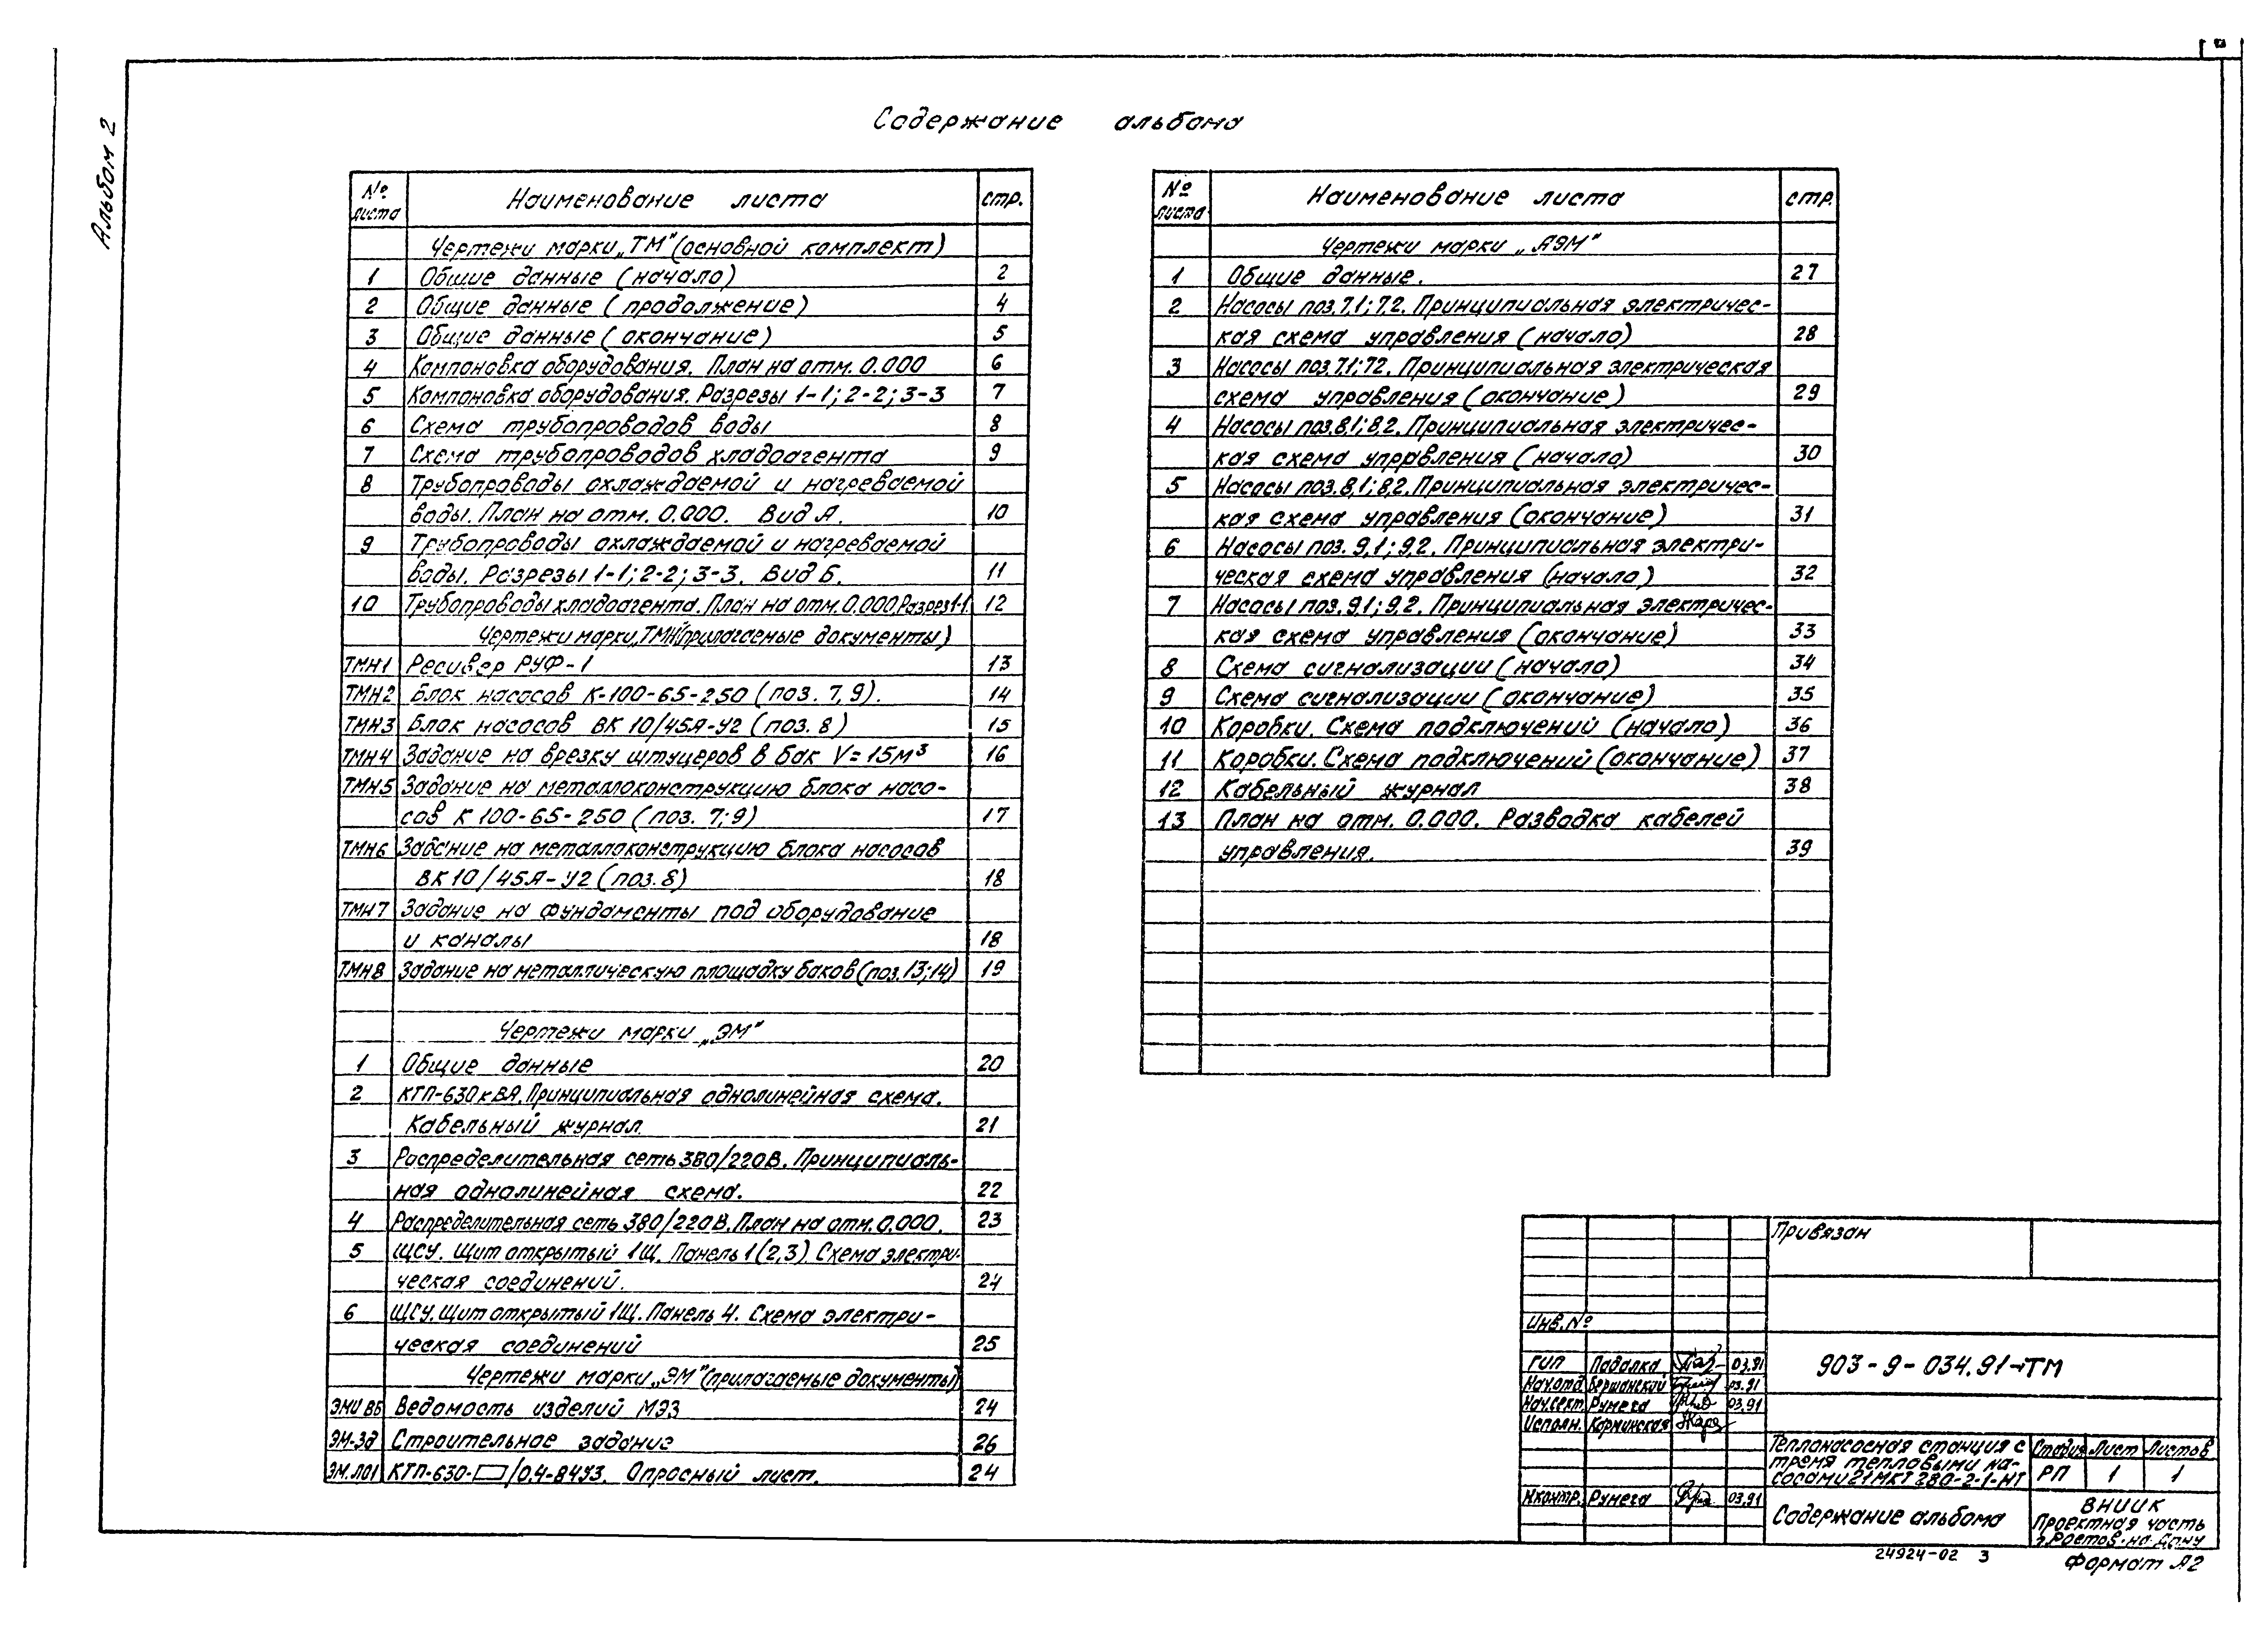 Альбом 2
Содержание альбома
№ листа Наименование листа стр.
Чертежи марки „ТМ" (основной комплект)
1 Общие данные (начало) 2
2 Общие данные (продолжение) 4
3 Общие данные (окончание) 5
4 Компановка оборудования. План на отм. 0.000 6
5 Компановка оборудования. Разрезы 1-1; 2-2; 3-3 7
6 Схема трубопроводов воды 8
7 Схема трубопроводов хладоагента 9
8 Трубопроводы охлаждаемой и нагреваемой
воды. План на отм. 0.000. Вид А. 10
9 Трубопроводы охлаждаемой и нагреваемой
воды. Разрезы 1-1; 2-2; 3-3. Вид Б. 11
10 Трубопроводы хладоагента. План на отм. 0.000. Разрез 1-1. 12
Чертежи марки „ТМН" (прилагаемые документы)
ТМН1 Ресивер РУФ-1 13
ТМН2 Блок насосов К-100-65-250 (поз. 7, 9). 14
ТМН3 Блок насосов ВК 10/45А-У2 (поз. 8) 15
ТМН4 Задание на врезку штуцеров в бак V=15м³ 16
ТМН5 Задание на металлоконструкцию блока насо-
сов К 100-65-250 (поз. 7; 9) 17
ТМН6 Задание на металлоконструкцию блока насосов
ВК 10/45А-У2 (поз. 8) 18
ТМН7 Задание на фундаменты под оборудование
и каналы 18
ТМН8 Задание на металлическую площадку баков (поз. 13; 14) 19
Чертежи марки „ЭМ"
1 Общие данные 20
2 КТП-630 кВА. Принципиальная однолинейная схема.
Кабельный журнал. 21
3 Распределительная сеть 380/220В. Принципиаль-
ная однолинейная схема. 22
4 Распределительная сеть 380/220В. План на отм. 0.000. 23
5 ЩСУ. Щит открытый 1Щ. Панель 1 (2,3). Схема электри-
ческая соединений. 24
6 ЩСУ. Щит открытый 1Щ. Панель 4. Схема электри-
ческая соединений 25
Чертежи марки „ЭМ" (прилагаемые документы)
ЭМИ ВБ Ведомость изделий МЭЗ 24
ЭМ-Зд Строительное задание 26
ЭМ.ЛО1 КТП-630-▭/0.4-84У3. Опросный лист. 24
№ листа Наименование листа стр.
Чертежи марки „АЭМ"
1 Общие данные. 27
2 Насосы поз. 7.1; 7.2. Принципиальная электричес-
кая схема управления (начало) 28
3 Насосы поз. 7.1; 7.2. Принципиальная электрическая
схема управления (окончание) 29
4 Насосы поз. 8.1; 8.2. Принципиальная электричес-
кая схема управления (начало) 30
5 Насосы поз. 8.1; 8.2. Принципиальная электричес-
кая схема управления (окончание) 31
6 Насосы поз. 9.1; 9.2. Принципиальная электри-
ческая схема управления (начало) 32
7 Насосы поз. 9.1; 9.2. Принципиальная электричес-
кая схема управления (окончание) 33
8 Схема сигнализации (начало) 34
9 Схема сигнализации (окончание) 35
10 Коробки. Схема подключений (начало) 36
11 Коробки. Схема подключений (окончание) 37
12 Кабельный журнал 38
13 План на отм. 0.000. Разводка кабелей
управления. 39
Привязан
Инв. №
ГИП Падалка 03.91
Нач.отд. Вершанский 03.91
Нач.сект. Румега 03.91
Исполн. Корминская
Н.контр. Румега 03.91
903-9-034.91-ТМ
Теплонасосная станция с
тремя тепловыми на-
сосами 21МКТ 280-2-1-НТ
Стадия Лист Листов
РП 1 1
Содержание альбома
ВНИИК
Проектная часть
г. Ростов-на-Дону
24924-02 3
Формат А2